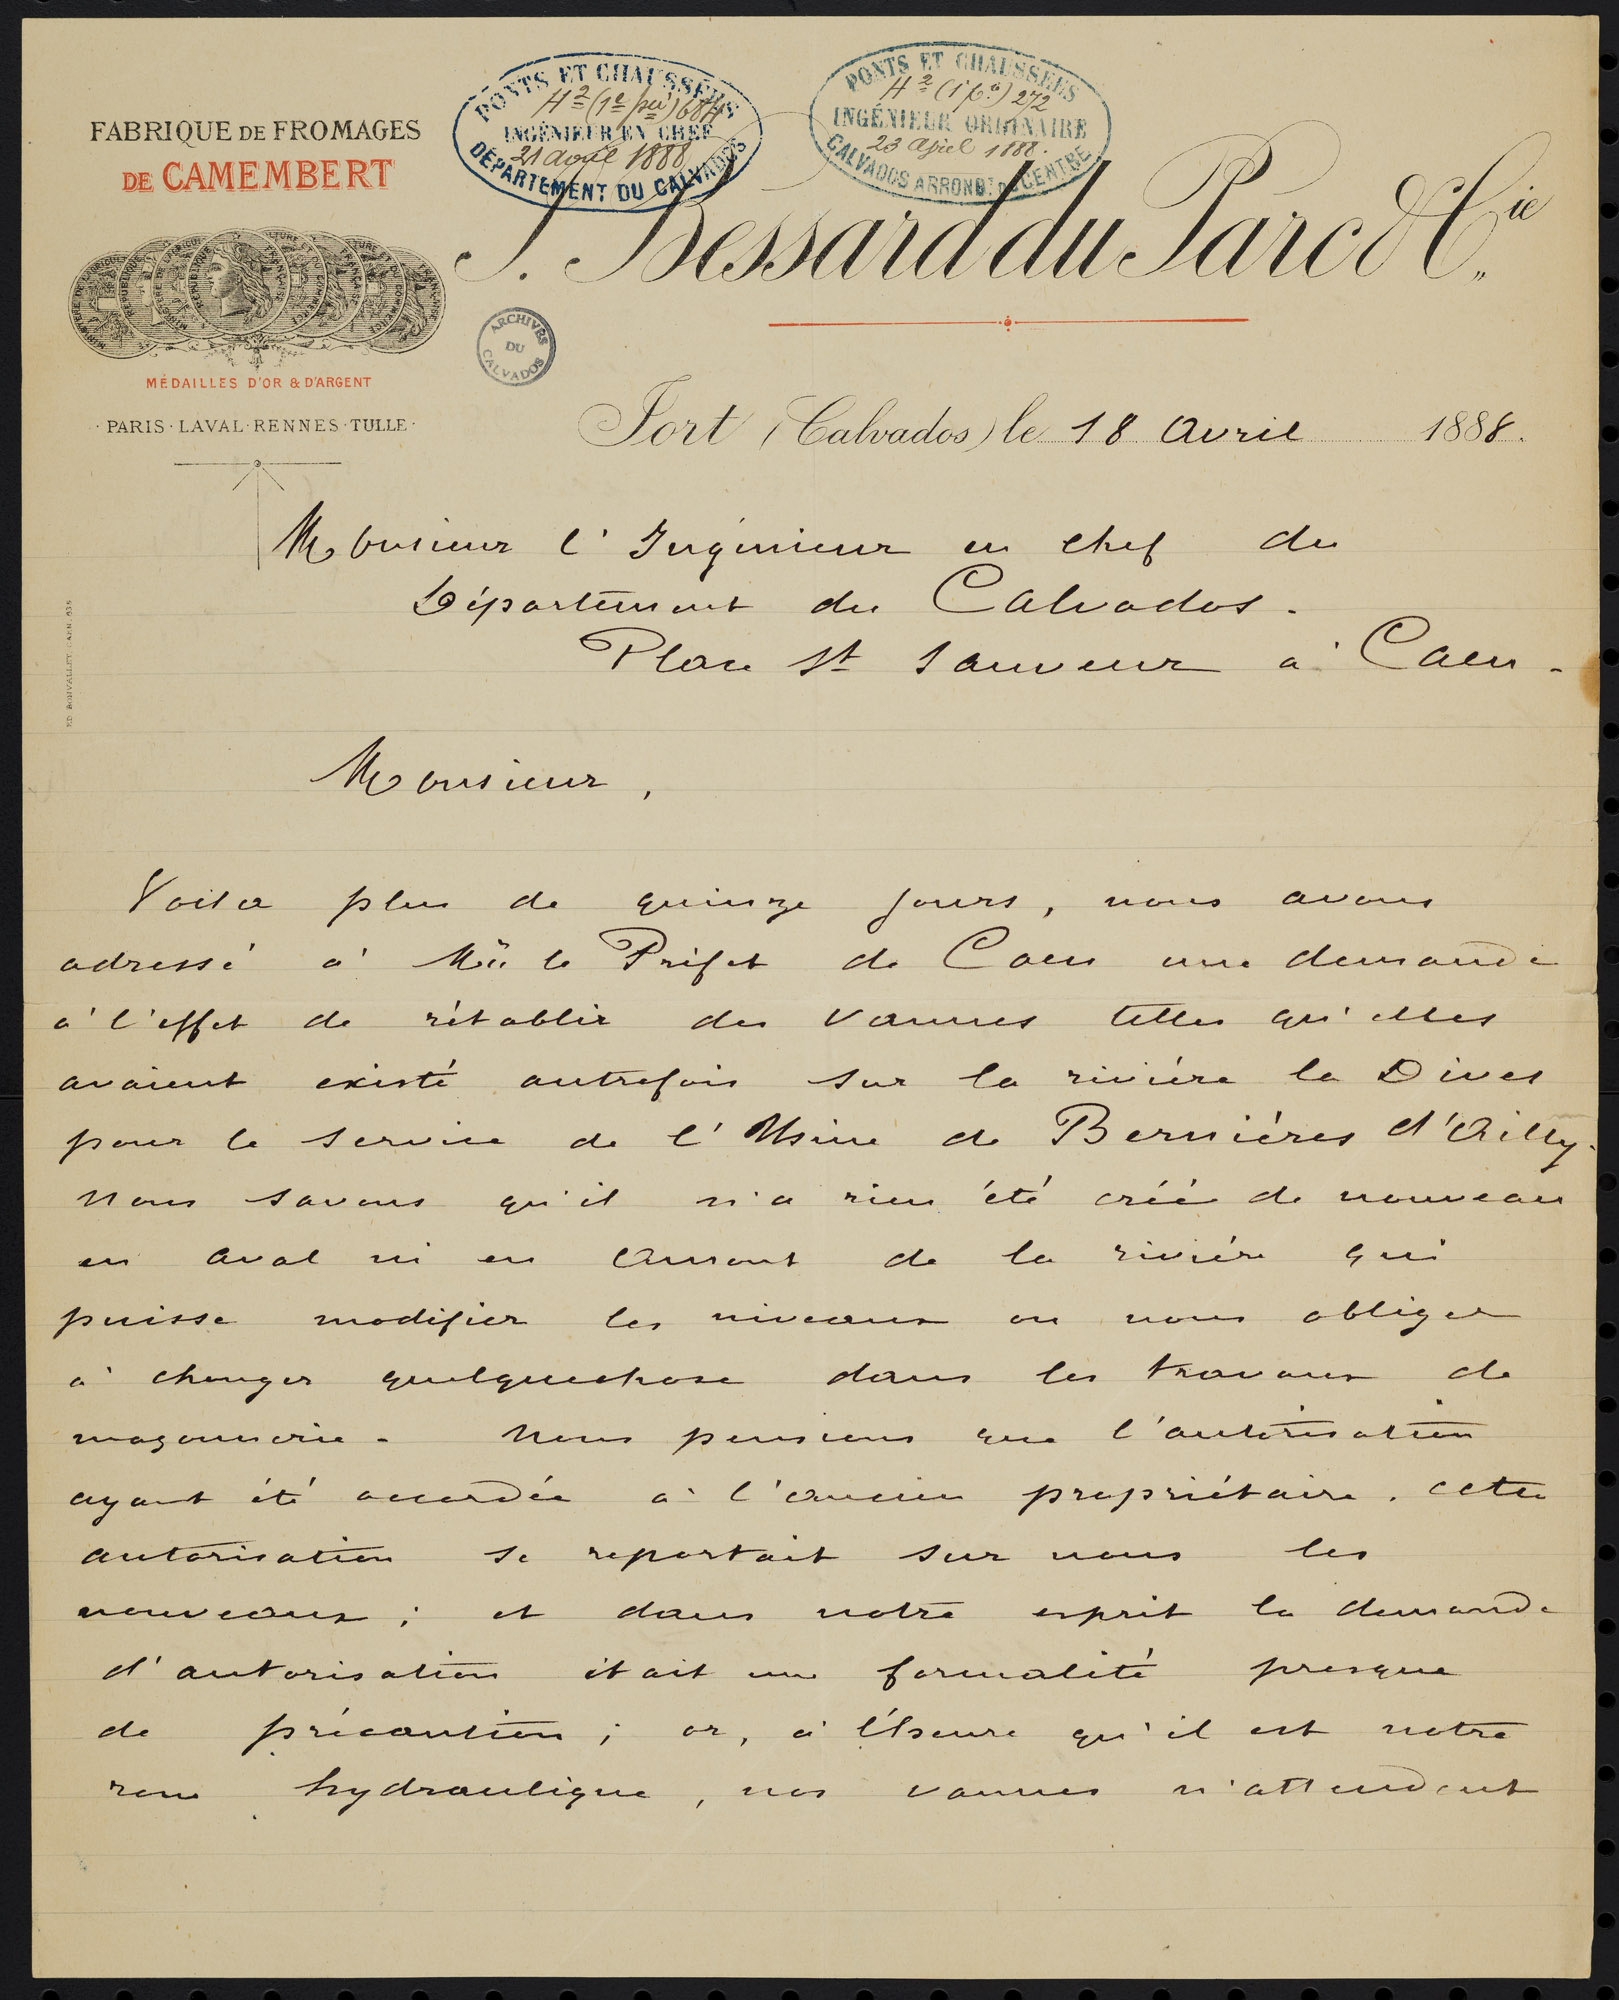 FABRIQUE DE FROMAGES
DE CAMEMBERT
MÉDAILLES D'OR & D'ARGENT
PARIS · LAVAL · RENNES · TULLE
PONTS ET CHAUSSÉES
INGÉNIEUR EN CHEF
21 avril 1888
DÉPARTEMENT DU CALVADOS
PONTS ET CHAUSSÉES
H² (1e pie) 272
INGÉNIEUR ORDINAIRE
23 Avril 1888.
CALVADOS ARRONDT DU CENTRE
J. Bessard du Parc & Cie
ARCHIVES
DU
CALVADOS
Jort (Calvados) le 18 Avril 1888.
ED. BONVALLET, CAEN
Monsieur l'Ingénieur en chef du
Département du Calvados.
Place St Sauveur à Caen.
Monsieur,
Voila plus de quinze jours, nous avons
adressé à Mr. le Préfet de Caen une demande
à l'effet de rétablir des vannes telles qu'elles
avaient existé autrefois sur la rivière la Dives
pour le service de l'Usine de Bernières d'Ailly.
Nous savons qu'il n'a rien été créé de nouveau
en aval ni en amont de la rivière qui
puisse modifier les niveaux ou nous obliger
à changer quelquechose dans les travaux de
maçonnerie. Nous pensions que l'autorisation
ayant été accordée à l'ancien propriétaire, cette
autorisation se reportait sur nous les
nouveaux ; et dans notre esprit la demande
d'autorisation était une formalité presque
de précaution ; or, à l'heure qu'il est notre
roue hydraulique, nos vannes n'attendent